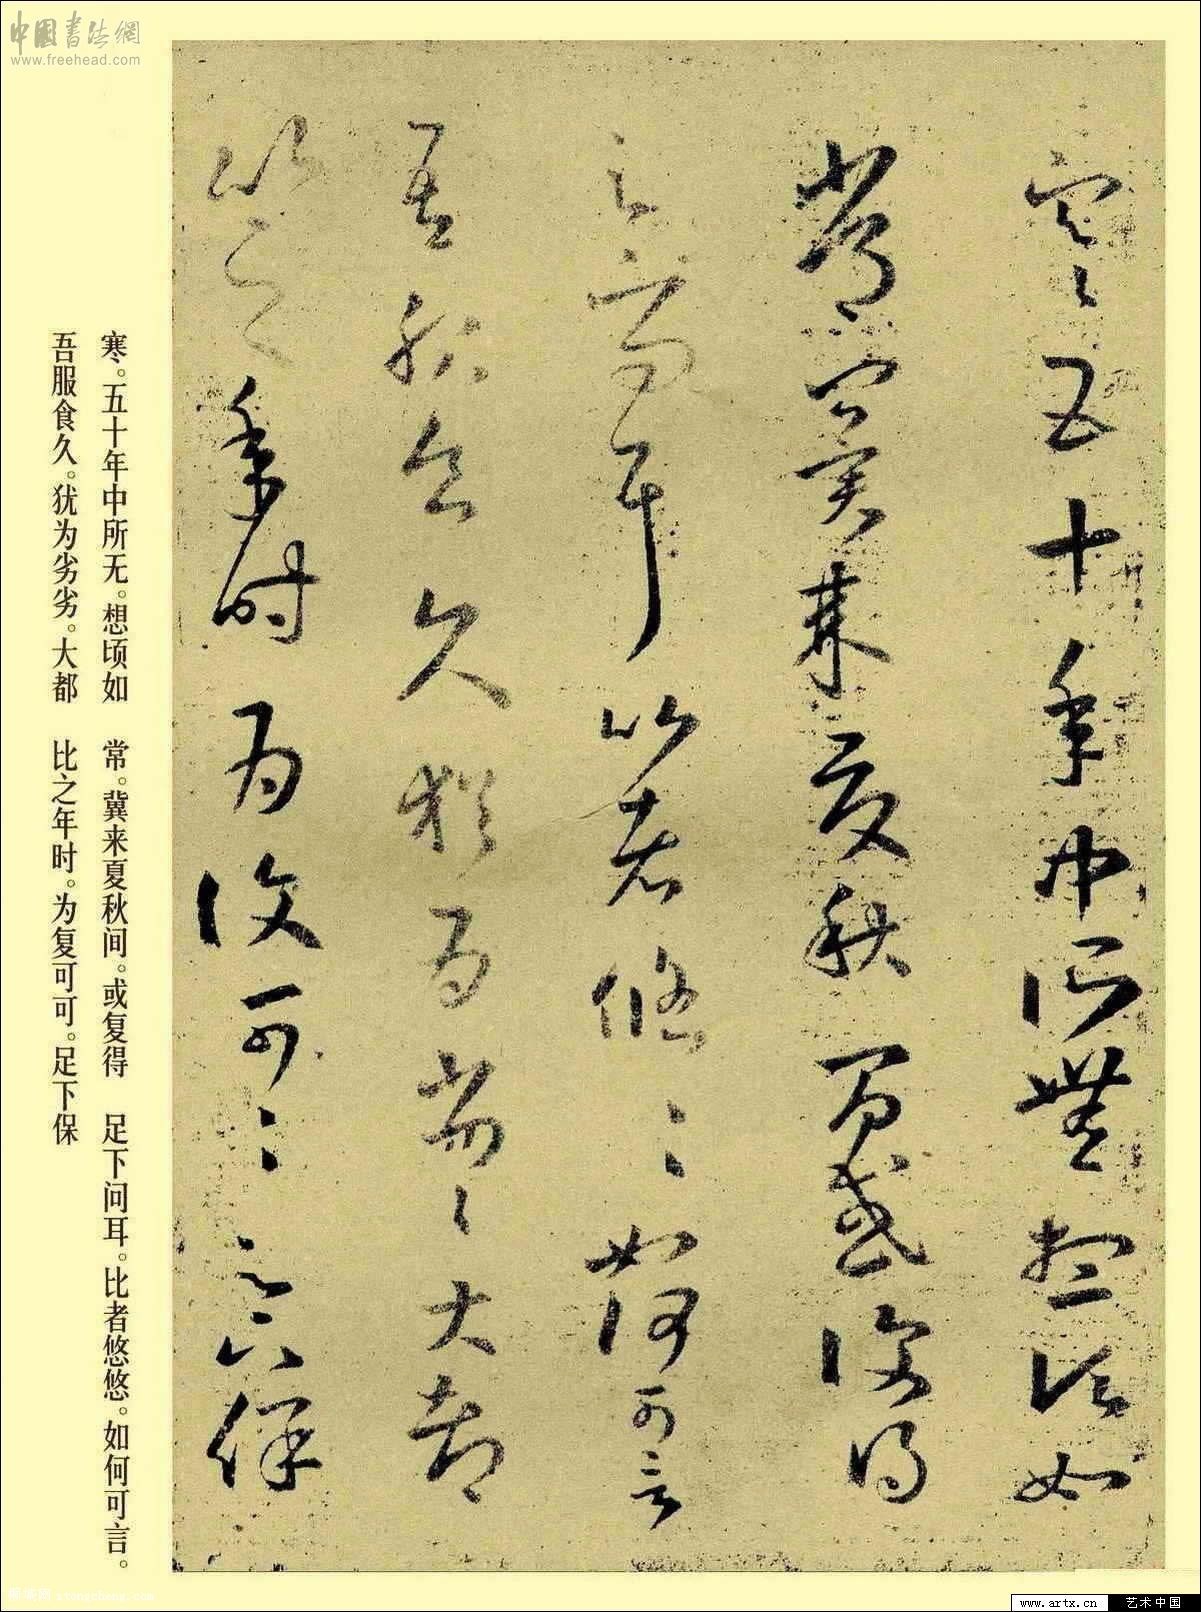 寒〻五十年中所無想頃如
常冀来夏秋間或復得
足下問耳比者悠〻如何可言
吾服食久猶為劣〻大都
比之年時為復可〻足下保
寒。五十年中所无。想顷如　常。冀来夏秋间。或复得　足下问耳。比者悠悠。如何可言。
吾服食久。犹为劣劣。大都　比之年时。为复可可。足下保
中国书法網
www.freehead.com
www.artx.cn 艺术中国